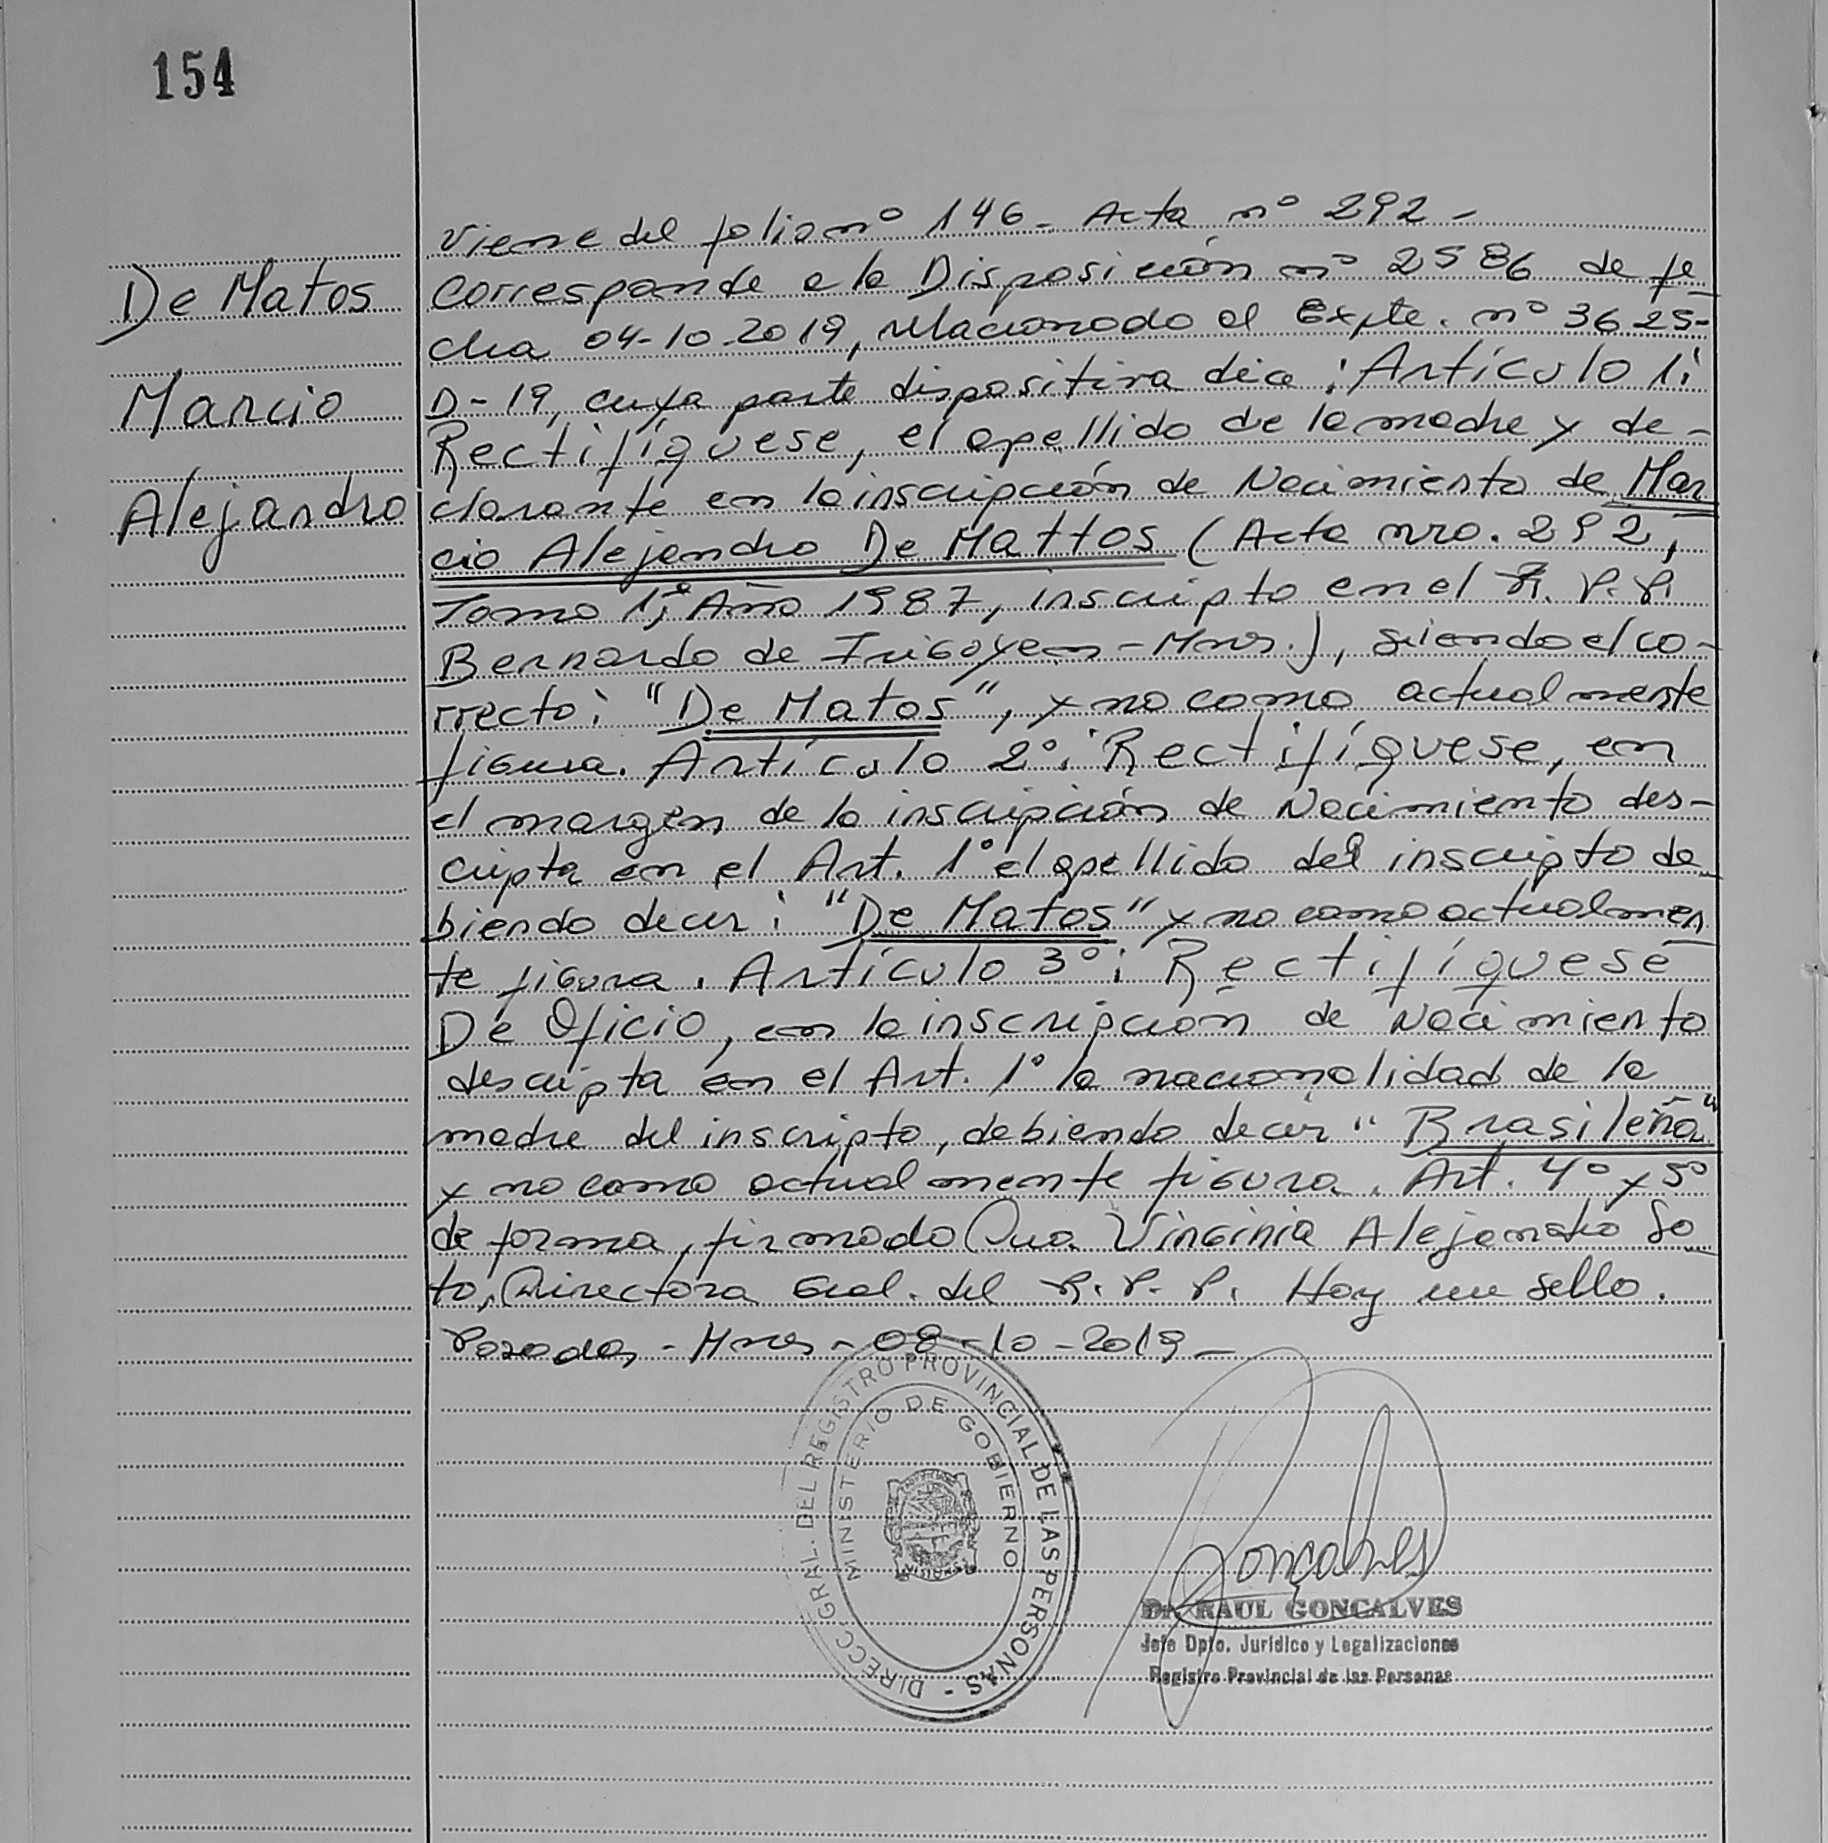 154
De Matos
Marcio
Alejandro
Viene del folio nº 146 - Acta nº 292 -
Corresponde a la Disposición nº 2586 de fe
cha 04-10-2019, relacionado al Expte. nº 3625-
D-19, cuya parte dispositiva dice: Artículo 1:
Rectifíquese, el apellido de la madre y de-
clarante en la inscripción de Nacimiento de Mar
cio Alejandro De Mattos (Acta nro. 292,
Tomo 1º, Año 1987, inscripto en el R. P. P.
Bernardo de Irigoyen - Mnes.), siendo el co-
rrecto: "De Matos", y no como actualmente
figura. Artículo 2º: Rectifíquese, en
el margen de la inscripción de Nacimiento des-
cripta en el Art. 1º el apellido del inscripto de
biendo decir: "De Matos" y no como actualmen
te figura. Artículo 3º: Rectifíquese
De Oficio, en la inscripción de Nacimiento
descripta en el Art. 1º la nacionalidad de la
madre del inscripto, debiendo decir "Brasileña"
y no como actualmente figura. Art. 4º y 5º
de forma, firmado Dra. Virginia Alejandra So
to, Directora Gral. del R. P. P. Hay un sello.
Posadas - Mnes - 08-10-2019 -
DIRECC. GRAL. DEL REGISTRO PROVINCIAL DE LAS PERSONAS -
MINISTERIO DE GOBIERNO
Goncalves
Dr. RAUL GONCALVES
Jefe Dpto. Jurídico y Legalizaciones
Registro Provincial de las Personas